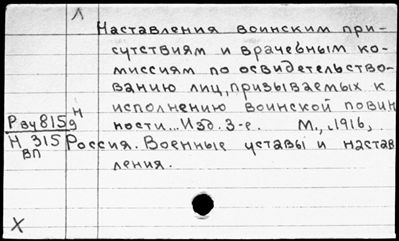 Л
Наставления воинским при-
сутствиям и врачебным ко-
миссиям по освидетельство-
ванию лиц, призываемых к
исполнению воинской повин
ности... Изд. 3-е. М., 1916,
Рву815д
Н
Н 315
ВП
Россия. Военные уставы и настав
ления.
X